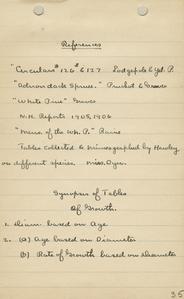 References
"Circulars # 126 & 127 Lodgepole & Yel. P.
"Adirondack Spruce." Pinchot & Graves
"White Pine" Graves
N.H. Reports 1905, 1906
"Mens. of the Wh. P." Rains
Tables collected & mimeographed by Hawley
on different species. Miss. Oyer.
Synopsis of Tables
Of Growth.
1. Diam. based on Age
2. (a) Age based on Diameter
(b) Rate of Growth based on Diameter
35